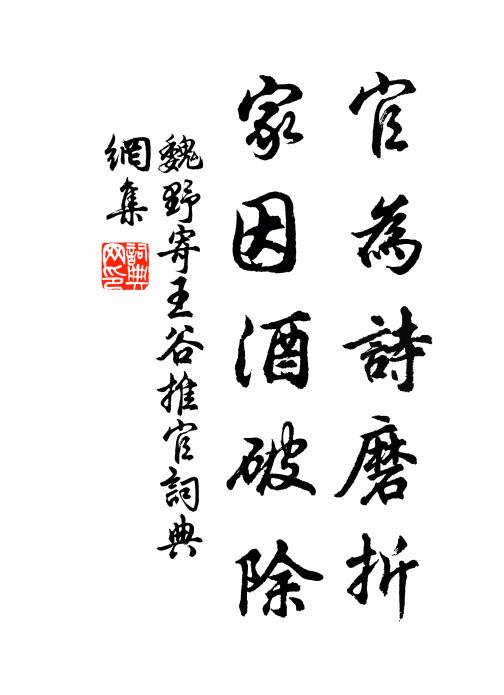 官為詩磨折
家因酒破除
魏野寄王谷推官詞典
網集
詞典
网印